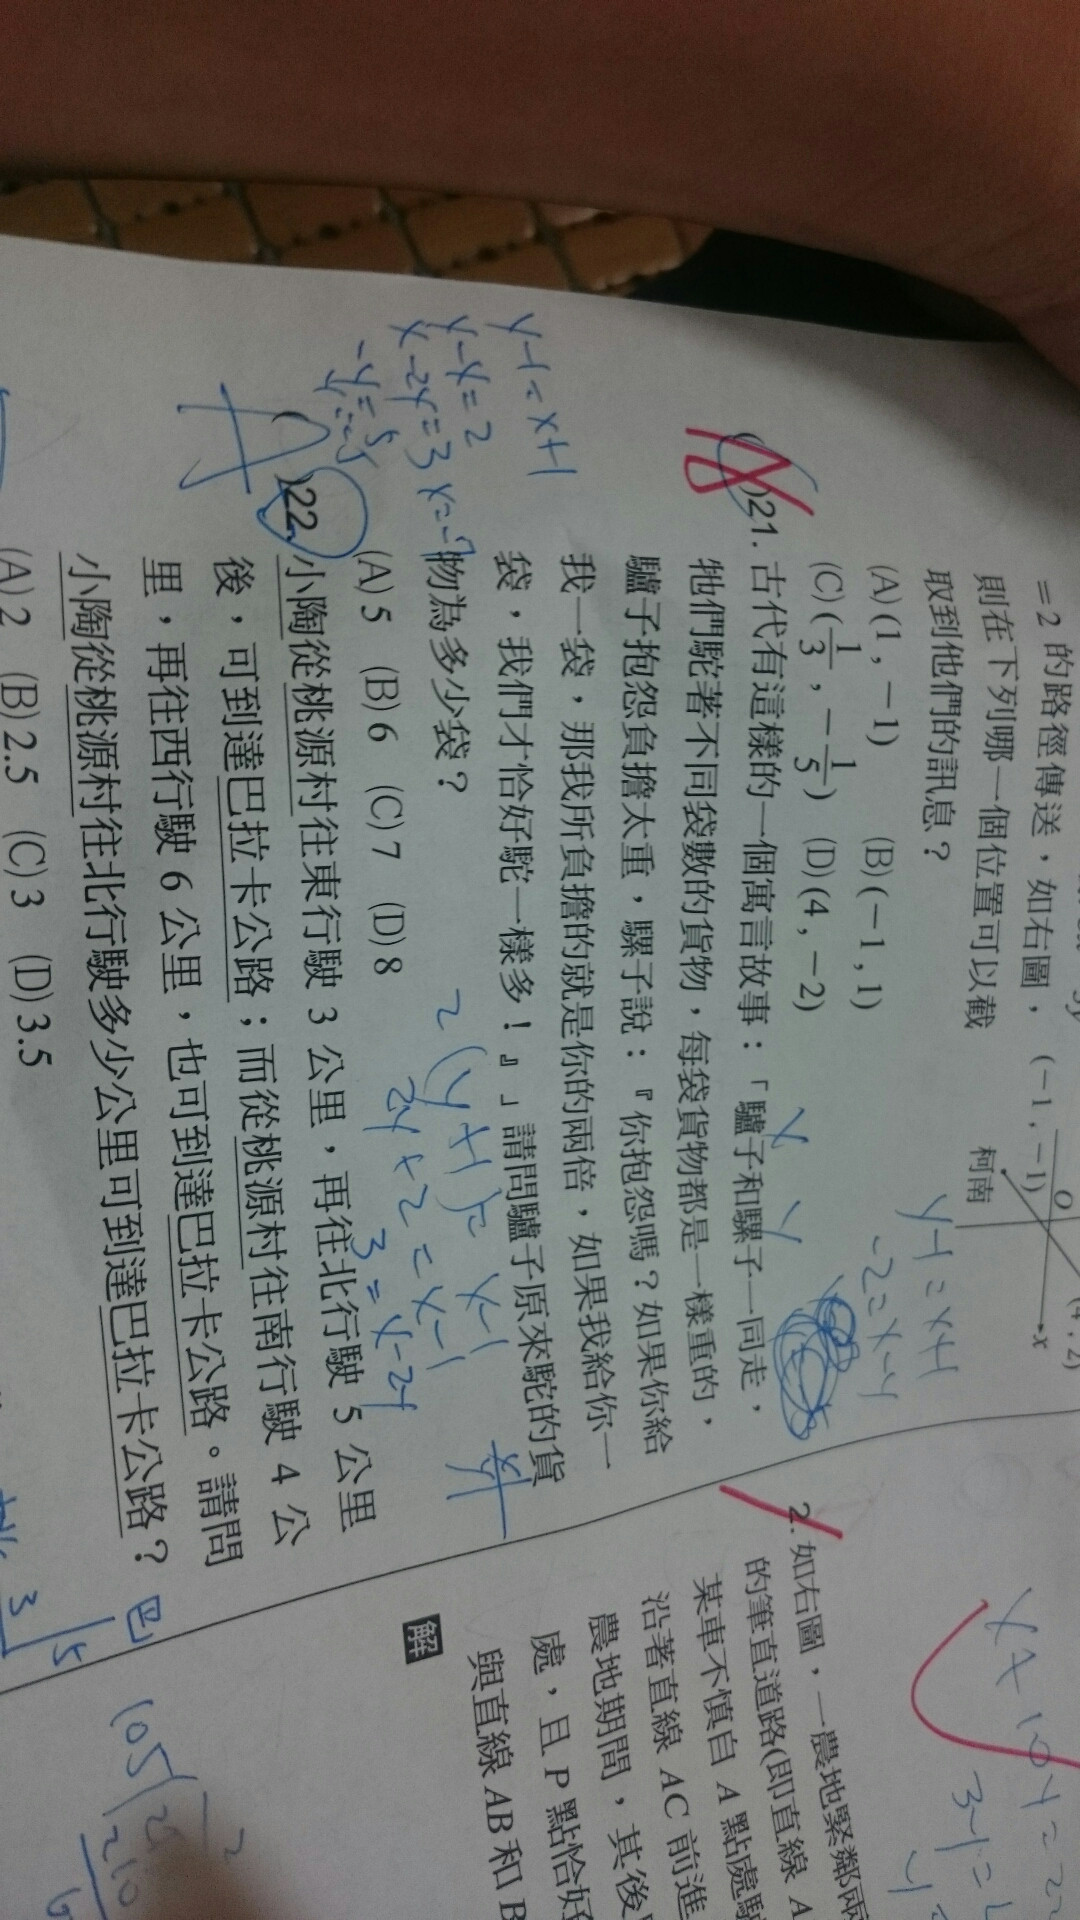 =2 的路徑傳送，如右圖，
則在下列哪一個位置可以截
取到他們的訊息？
(A)(1，-1) (B)(-1，1)
(C)(1/3，-1/5) (D)(4，-2)
(-1，-1)
柯南
O
x
(4，2)
y-1=x+1
-2=x-y
)21. 古代有這樣的一個寓言故事：「驢子和騾子一同走，
x y
牠們駝著不同袋數的貨物，每袋貨物都是一樣重的，
驢子抱怨負擔太重，騾子說：『你抱怨嗎？如果你給
我一袋，那我所負擔的就是你的兩倍，如果我給你一
袋，我們才恰好駝一樣多！』」請問驢子原來駝的貨
物為多少袋？
(A)5 (B)6 (C)7 (D)8
y-1=x+1
y-x=2
x-2y=3
-y=5
2(y+1)=x-1
2y+2=x-1
3=x-2y
( )22. 小陶從桃源村往東行駛 3 公里，再往北行駛 5 公里
後，可到達巴拉卡公路；而從桃源村往南行駛 4 公
里，再往西行駛 6 公里，也可到達巴拉卡公路。請問
小陶從桃源村往北行駛多少公里可到達巴拉卡公路？
(A)2 (B)2.5 (C)3 (D)3.5
巴
3
5
2. 如右圖，一農地緊鄰兩
的筆直道路(即直線 A
某車不慎自 A 點處駛
沿著直線 AC 前進
農地期間，其後
處，且 P 點恰好
與直線 AB 和 B
解
x+10y=22
105
2
210